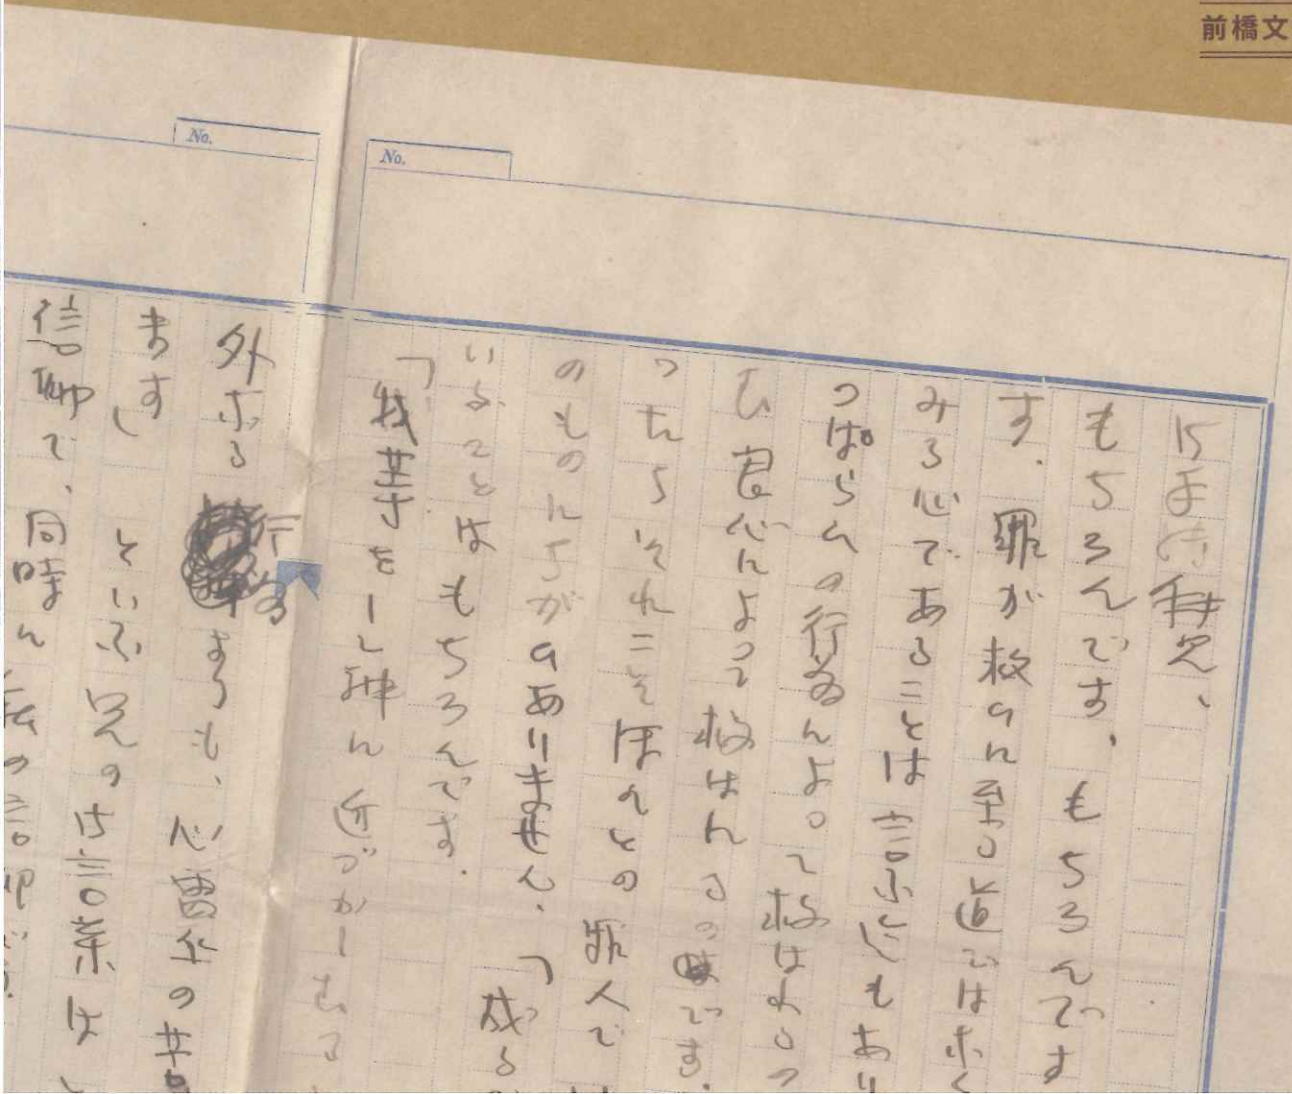 前橋文
No.
No.
もちろんです、もちろんです
す、罪が救ひに至る道ではなく
みる心であることは言ふまでもあり
つぱらひの行為によつて救はれようつ
ひ良心によつて救はれるのです。
つたらそれこそほんとの罪人で
のものにちがひありません、「成る
いることはもちろんです。
「我等をして神に近づかしむる
外なる行為よりも、心霊上の
ます」といふ兄のお言葉は
信仰で、同時に私の信仰です。